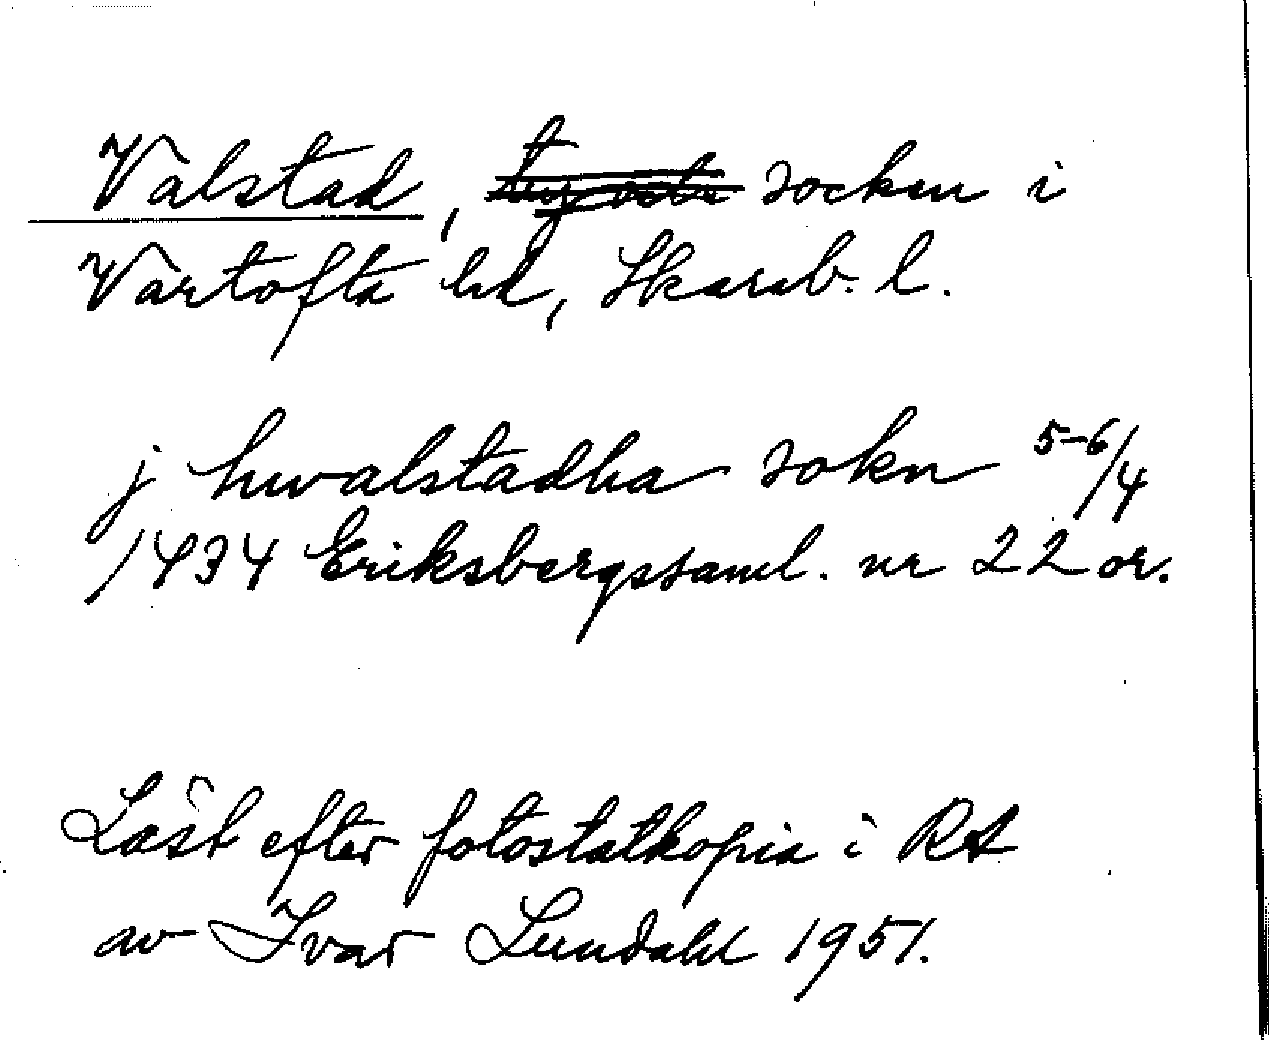 Valstad, socken i
Vartofta hd, Skarab. l.
j hwalstadha sokn 5-6/4
1434 Eriksbergssaml. nr 22 or.
Läst efter fotostatkopia i RA
av Ivar Lundahl 1951.